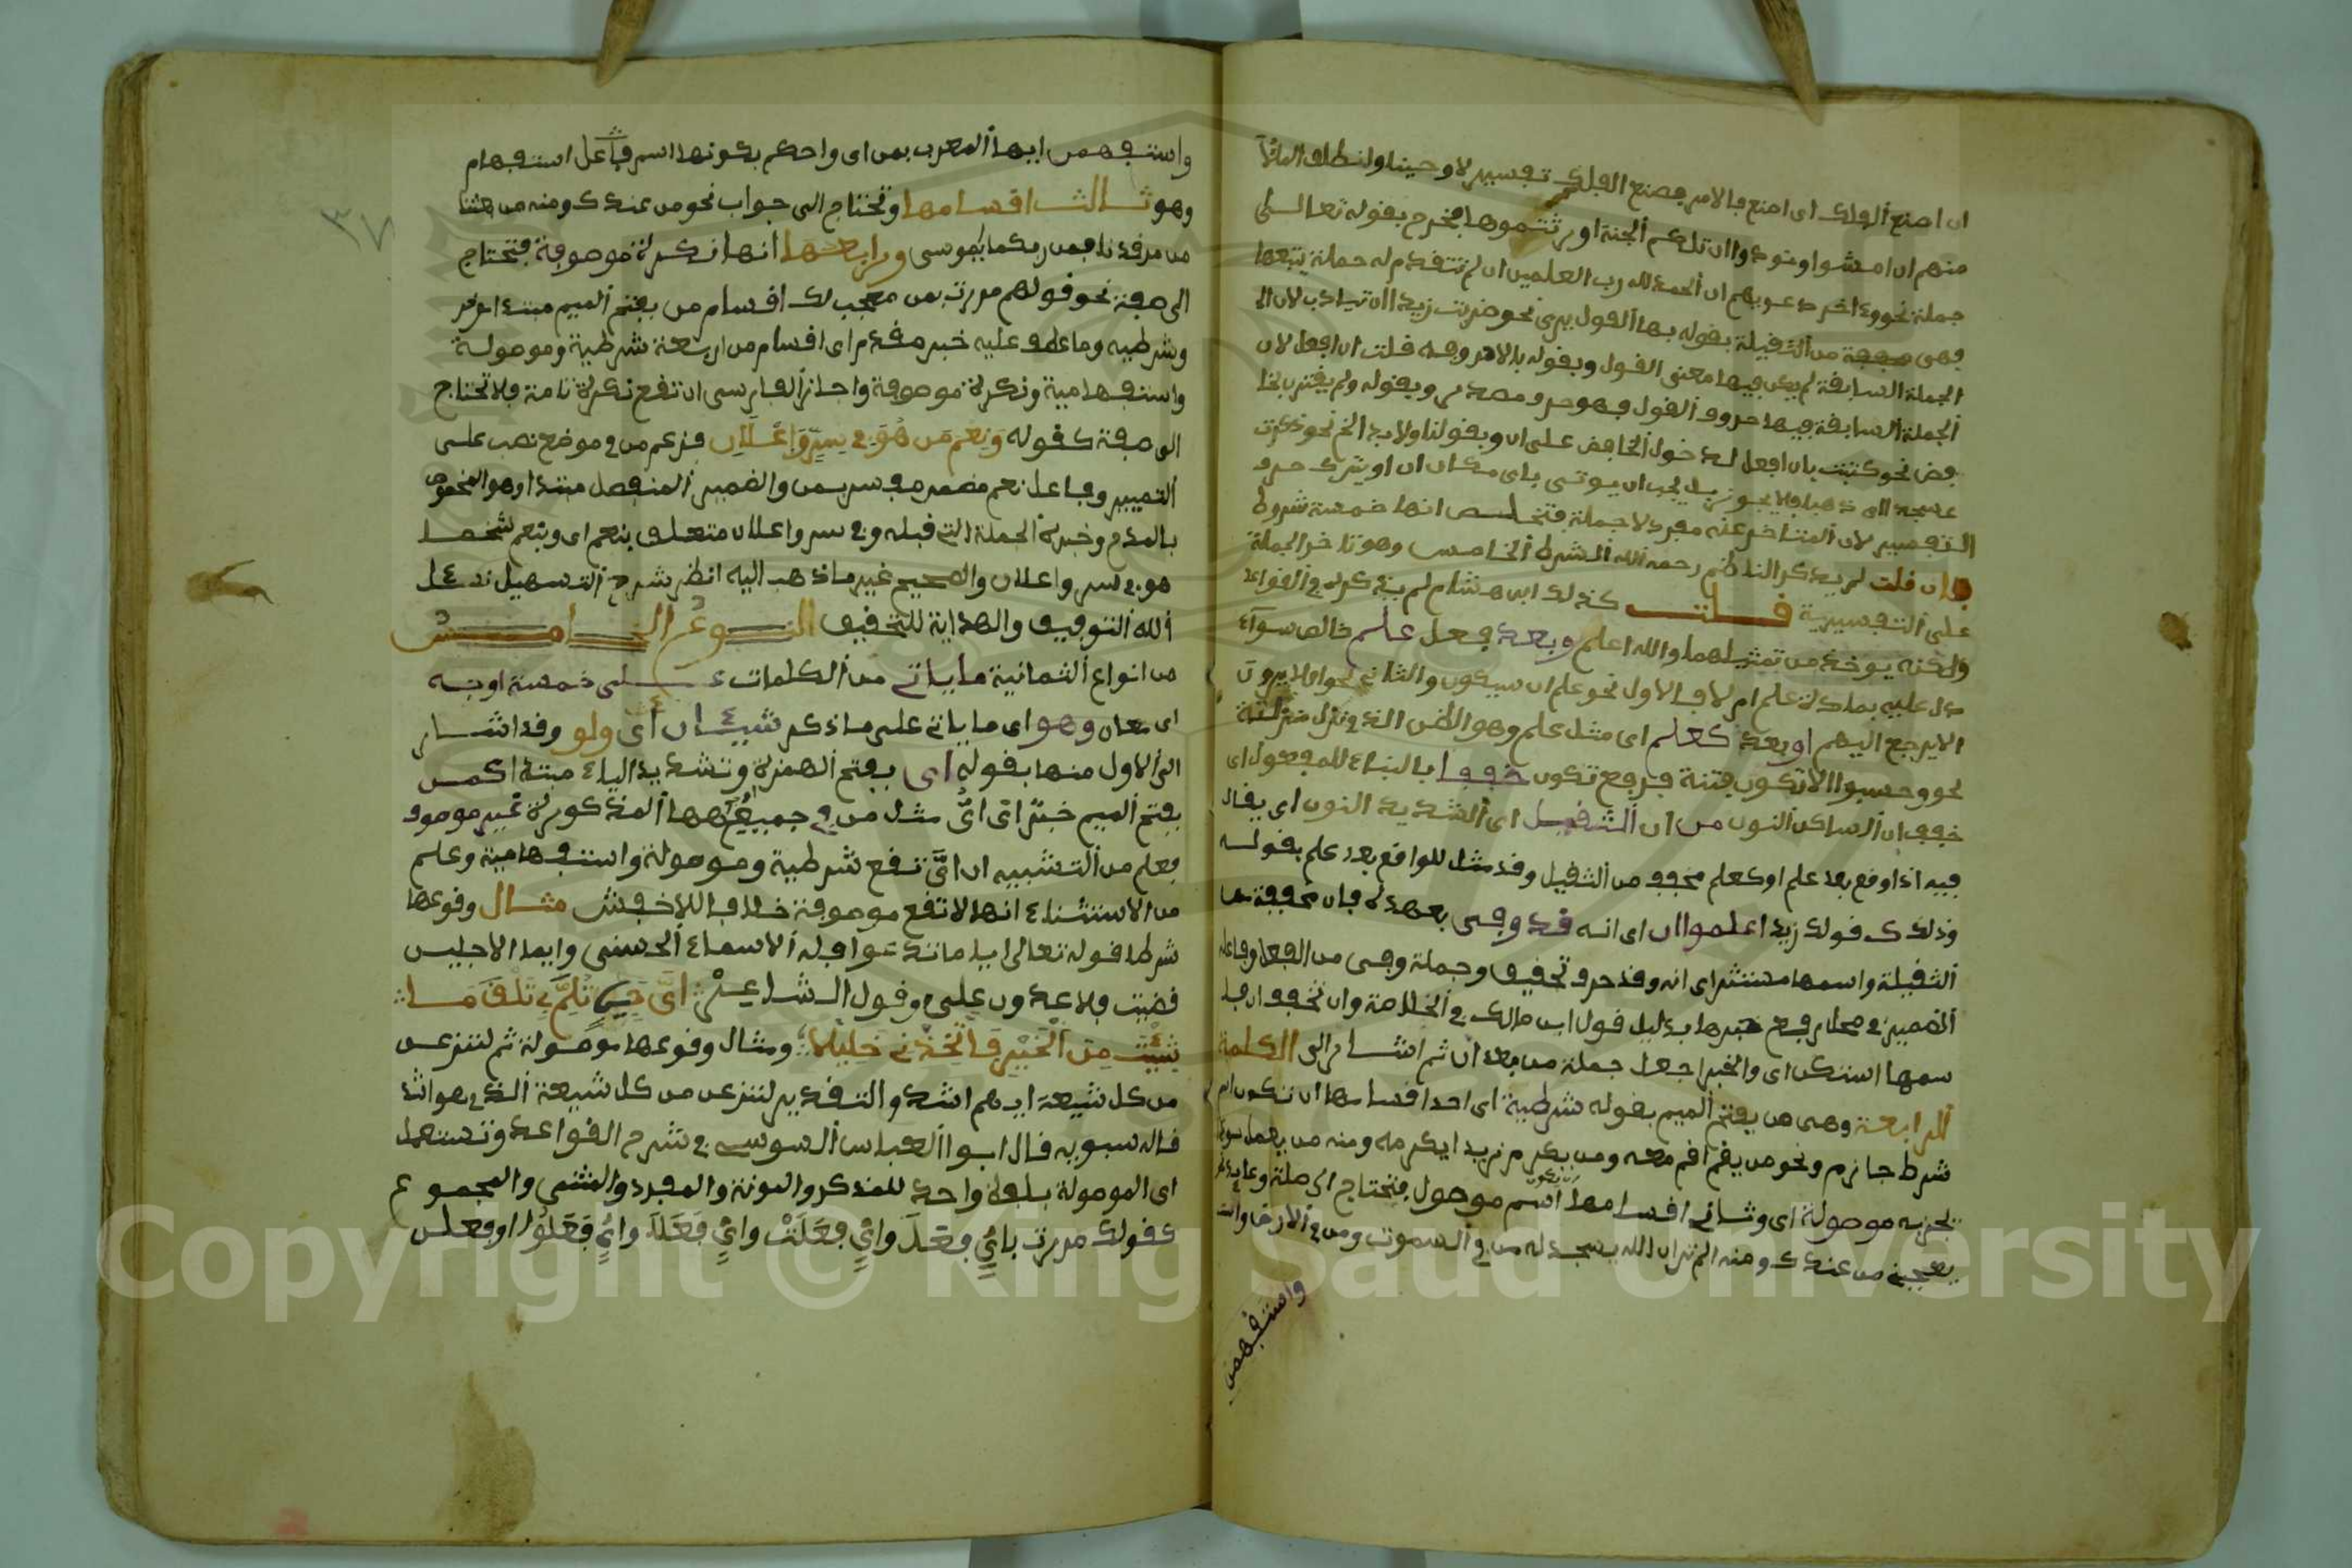 ان اصنع الفلك اى اصنع فالامر بصنع الفلك تفسير لاوحينا وانطلق الملأ
منهم ان امشوا ونودوا ان تلكم الجنة اورثتموها فخرج بقوله تعالى
جملة نحو وءاخر دعويهم ان الحمد لله رب العلمين ان لم تتقدم له جملة يتبعها
فهى مخففة من الثقيلة بقوله بها القول يرى نحو ضربت زيدا ان تيادب لان
الجملة السابقة لم يكن فيها معنى القول وبقوله بالامر وجه قلت ان افعل لان
الجملة السابقة فيها حروف القول وهو حرف مصدرى وبقوله ولم يقترن بخا
فض نحو كتبت بان افعل لدخول الخافض على ان وبقولنا ولا بد الخ نحو ذكرت
عسجدا ان ذهبا فلا يجوز بل يجب ان يوتى باى مكان ان او يترك حرف
التفسير لان المتاخر عنه مفرد لا جملة فتخلص انها خمسة شروط
فان قلت لم يذكر الناظم رحمه الله الشرط الخامس وهو تاخر الجملة
على التفسيرية قلت كذلك ابن هشام لم يذكره فى القواعد
ولكنه يوخذ من تمثيلهما والله اعلم وبعد فعل علم خالص سوآء
دل عليه بمادة علم ام لا فالاول نحو علم ان سيكون والثانى نحو افلا يرون
الا يرجع اليهم او بعد كعلم اى مثل علم وهو الظن الذى نزل منزلته
نحو وحسبوا الا تكون فتنة فى رفع تكون خففوا بالبناء للمفعول اى
خفف ان الساكن النون من ان الثقيل اى الشديد النون اى يقال
فيه اذا وقع بعد علم او كعلم مخفف من الثقيل وقد مثل للواقع بعد علم بقوله
وذلك كقولك زيدا اعلموا ان اى انه قد وفى بعهده فان مخففة من
الثقيلة واسمها مستتر اى انه وقد حرف تحقيق وجملة وفى من الفعل وفاعله
الضمير فى محل رفع خبرها بدليل قول ابن مالك فى الخلاصة وان تخفف ان فا
سمها استكن اى والخبر اجعل جملة من بعد ان ثم اشار الى الكلمة
الرابعة وهى من بفتح الميم بقوله شرطية اى احد اقسامها ان تكون اسم
شرط جازم ونحو من يقم اقم معه ومن يكرم زيدا يكرمه ومنه من يعمل سوءا
يجز به موصولة اى وثانى اقسامها ان تكون اسم موصول فتحتاج الى صلة وعايد نحو
يعجبنى من عندك ومنه الم تر ان الله يسجد له من فى السموت ومن فى الارض وانت
واستفهمن
واستفهمن ايها المعرب بمن اى واحكم بكونها اسم فاعل استفهام
وهو ثالث اقسامها وتحتاج الى جواب نحو من عندك ومنه من بعثنا
من مرقدنا فمن ربكما يموسى ورابعها انها نكرة موصوفة فتحتاج
الى صفة نحو قولهم مررت بمن معجب لك اقسام من بفتح الميم مبتدا موخر
وشرطيه وما عطف عليه خبر مقدم اى اقسام من اربعة شرطية وموصولة
واستفهامية ونكرة موصوفة واجاز الفارسى ان تقع نكرة تامة فلا تحتاج
الى صفة كقوله وَنِعْم مَن هُوَ فى سِرٍّ وَإعْلَانِ فزعم من فى موضع نصب على
التمييز وفاعل نعم مضمر مفسر بمن والضمير المنفصل مبتدا وهو المخصوص
بالمدح وخبره الجملة التى قبله وفى سر واعلان متعلق بنعم اى ونعم شخصا
هو فى سر واعلان والصحيح غير ما ذهب اليه انظر شرح التسهيل نسءل
الله التوفيق والهداية للتحقيق النوع الخامس
من انواع الثمانية ما ياتى من الكلمات على خمسة اوجه
اى معان وهو اى ما ياتى على ما ذكر شيئان اى ولو وقد اشار
الى الاول منها بقوله اى بفتح الهمزة وتشديد الياء مبتدا كمن
بفتح الميم خبر اى اىّ مثل من فى جميع اوجهها المذكورة غير موصوف
فعلم من التشبيه ان اىّ تقع شرطية وموصولة واستفهامية وعلم
من الاستثناء انها لا تقع موصوفة خلافا للاخفش مثال وقوعها
شرطا قوله تعالى ايا ما تدعوا فله الاسماء الحسنى وايما الاجلين
قضيت فلا عدون على وقول الشاعر اىَّ حِينٍ تُلِمَّ بِى تَلْقَ مَا
شِئْتَ مِنَ الْخَيْرِ فَاتَّخِذْنِى خَلِيلًا ومثال وقوعها موصولة ثم لننزعن
من كل شيعة ايهم اشد والتقدير لننزعن من كل شيعة الذى هو اشد
قاله سبويه قال ابو العباس السوسى فى شرح القواعد وتستعمل
اى الموصولة بلفظ واحد للمذكر والمونث والمفرد والمثنى والمجموع
كقولك مررت باىٍّ فَعَلَ واىٍّ فَعَلَتْ واىٍّ فَعَلَا واىٍّ فَعَلُوا او فعلن
٣٧
Copyright © King Saud University